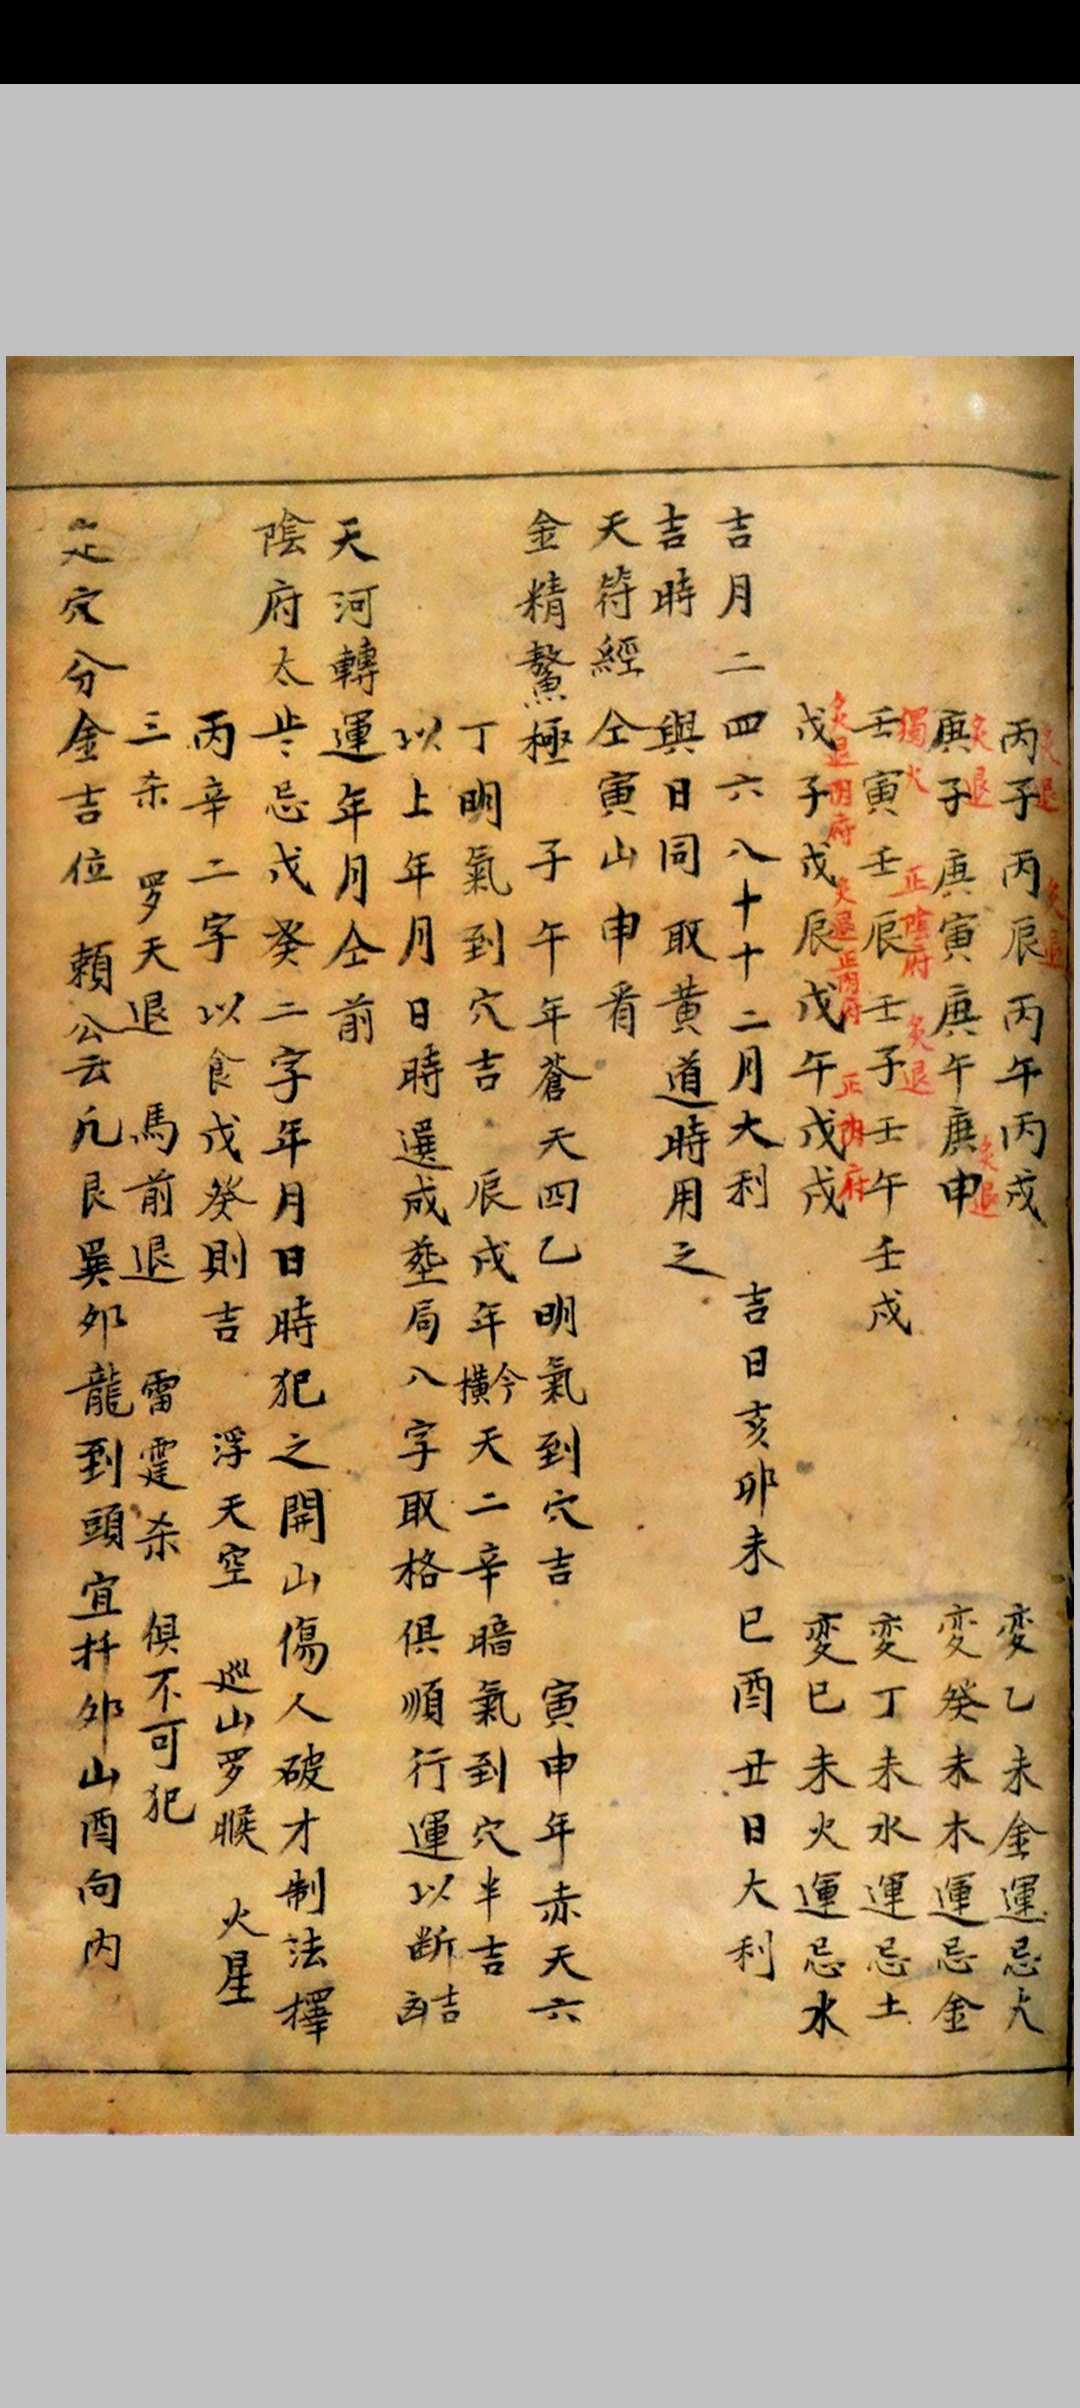 丙子丙辰丙午丙戌 変乙未金運忌火
灸退 灸退
庚子庚寅庚午庚申 変癸未木運忌金
灸退 灸退
壬寅壬辰壬子壬午壬戌 変丁未水運忌土
獨火 正陰府 灸退
戊子戊辰戊午戊戌 変巳未火運忌水
灸退阴府 灸退正阴府 正阴府
吉月二四六八十十二月大利 吉日亥卯未巳酉丑日大利
吉時 與日同取黄道時用之
天符經 仝寅山申看
金精鰲極 子午年蒼天四乙明氣到穴吉 寅申年赤天六
丁明氣到穴吉 辰戌年横今天二辛暗氣到穴半吉
以上年月日時選成葬局八字取格俱順行運以断吉凶
天河轉運年月仝前
陰府太歲忌戊癸二字年月日時犯之開山傷人破才制法擇
丙辛二字以食戊癸則吉 浮天空 巡山罗睺 火星
三杀 罗天退 馬前退 雷霆杀 俱不可犯
定穴分金吉位 頼公云凡艮巽夘龍到頭宜扦夘山酉向内